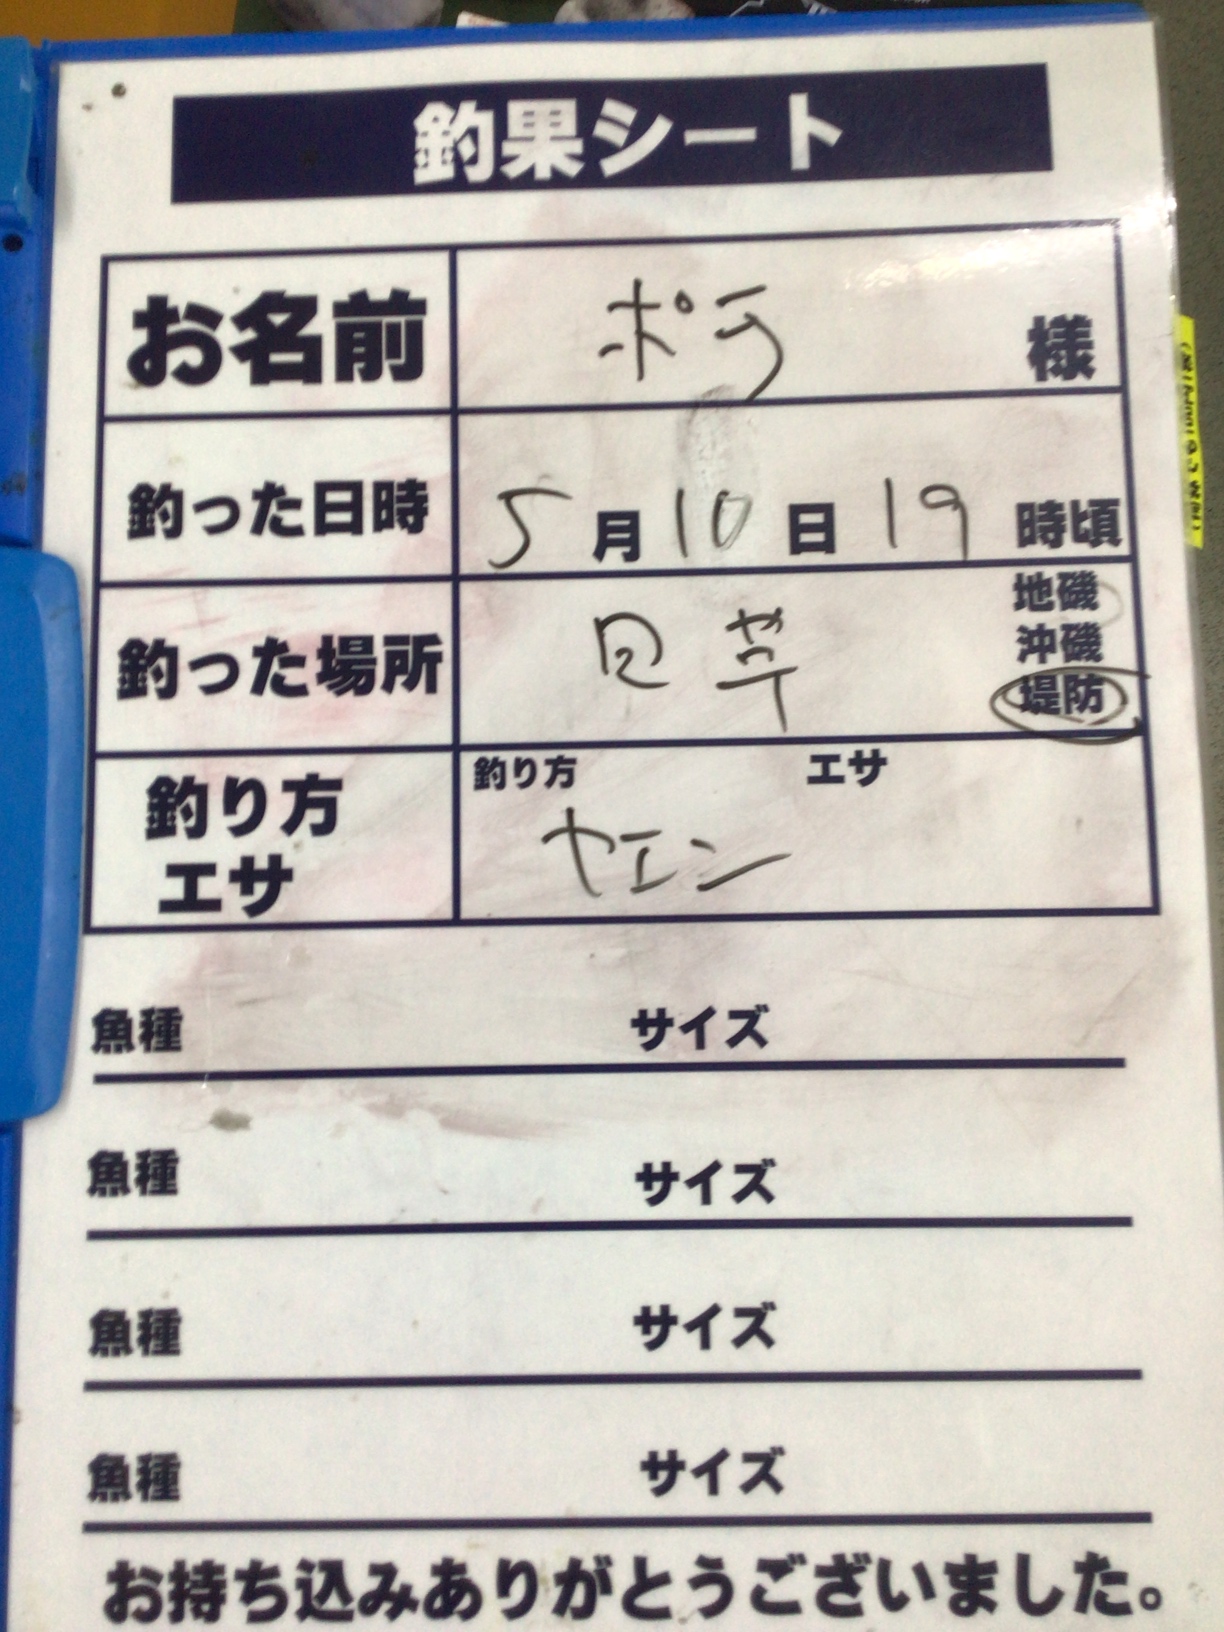 釣果シート
お名前 ポラ 様
釣った日時 5月10日19時頃
釣った場所 地磯
沖磯
堤防
釣り方 エサ
釣り方
エサ ヤエン
魚種 サイズ
魚種 サイズ
魚種 サイズ
魚種 サイズ
お持ち込みありがとうございました。